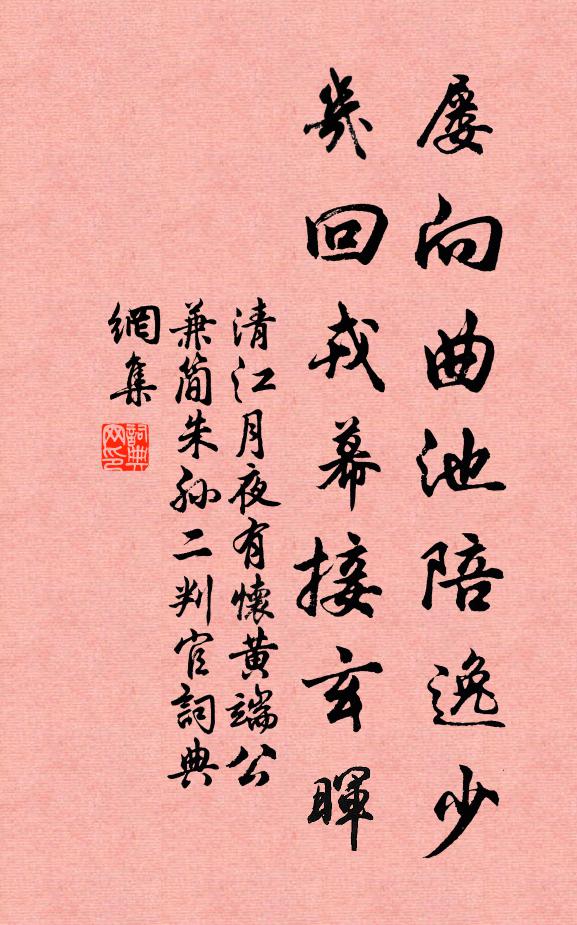 屡向曲池陪逸少
幾回戎幕接玄暉
清江月夜有懷黄端公
兼简朱孙二判官詞典
網集
詞典
网印